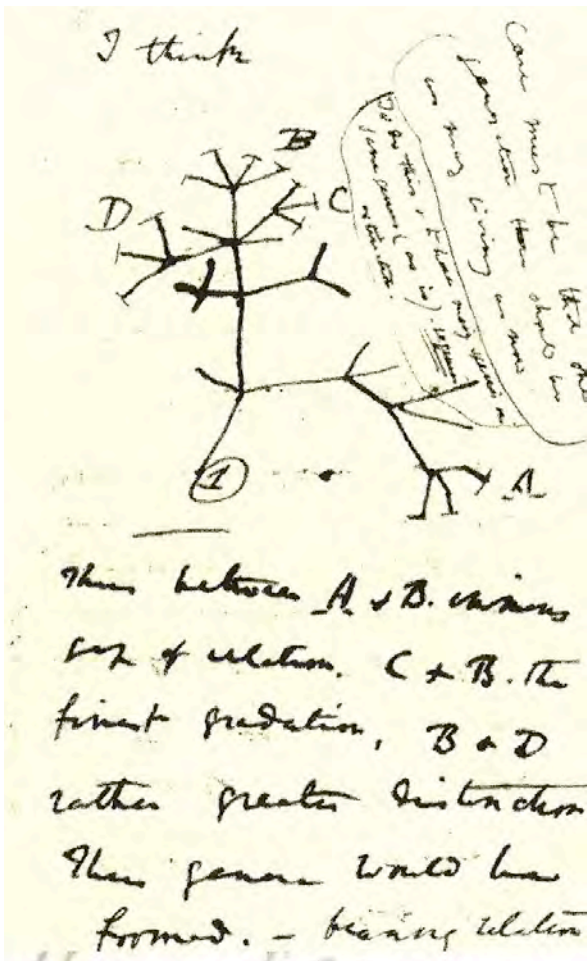 I think
B
C
D
A
1
Case must be that one
generation then should be
as many living as now
To do this & to have many species in
same genus (as is). requires
extinction.
Thus between A & B. immens
gap of relation. C & B. the
finest gradation, B & D
rather greater distinction
Thus genera would be
formed. — bearing relation